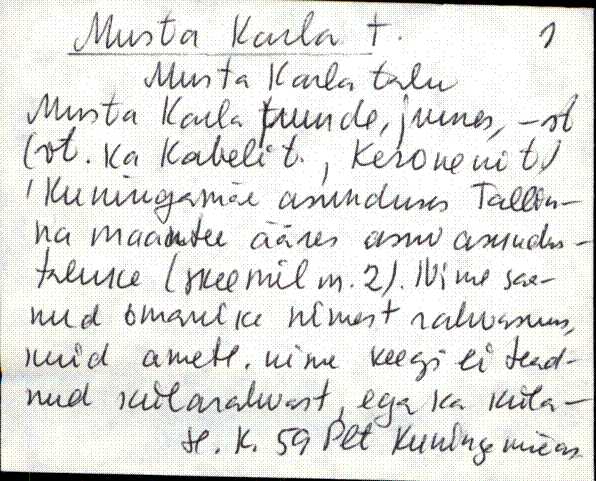 Musta Karla t. 1
Musta Karla talu
Musta Karla juurde, juures, -st
(vt. ka Kabeli t., Keroneni t.)
Kuningamäe asunduses Tallin-
na maantee ääres asuv asundus-
taluke (skeemil nr. 2). Nime saa-
nud omanike nimest rahvasuus,
kuid ametl. nime keegi ei tead-
nud külarahvast, ega ka küla-
H. K. 59 Plt Kuningamäe